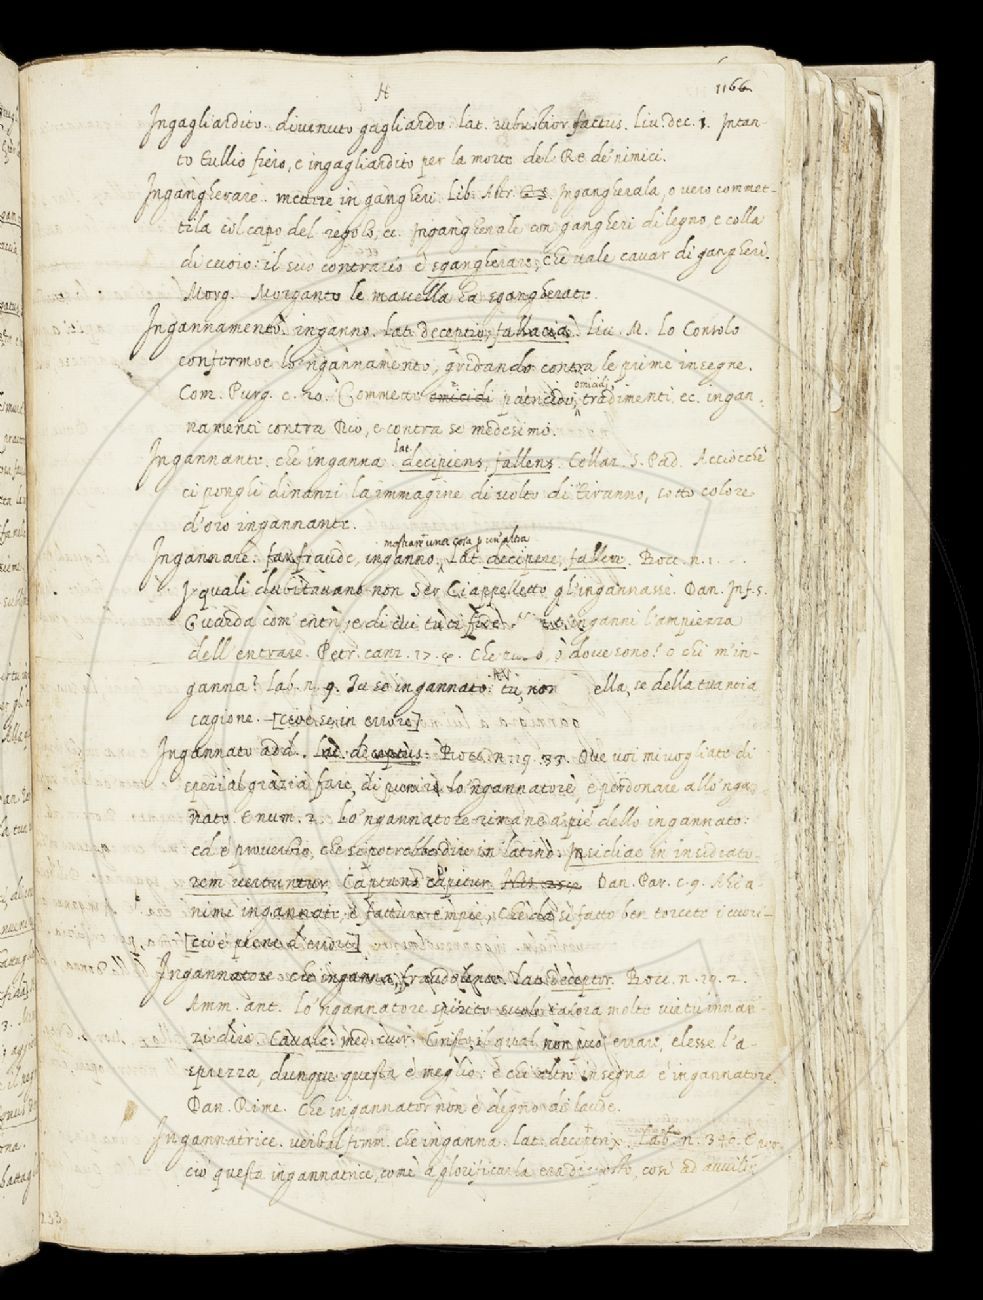 H
1166
Ingagliardito. divenuto gagliardo. lat. robustior factus. Liv. dec. 1. Intan-
to Tullio fiero, e ingagliardito per la morte del Re de' nimici.
Ingangherare. mettere in gangheri. Lib. Astr. Ingangherala, o vero commet-
tila col capo del regolo, ec. Ingangherale con gangheri di legno, e colla
di cuoio: il suo contrario è sgangherare, che vale cavar di gangheri.
Morg. Morganto le mascella ha sgangherate.
Ingannamento. inganno. Lat. deceptio, fallacia. Liv. M. Lo Consolo
conformoe lo 'ngannamento, gridando contra le prime insegne.
Com. Purg. c. 20. Commette omicidi patricidi, tradimenti, ec. ingan-
omicidi
namenti contra Dio, e contra se medesimo.
Ingannante. che inganna. lat. decipiens, fallens. Collaz. S. Pad. Acciocchè
ci pongli dinanzi la immagine di volto di Tiranno, sotto colore
d'oro ingannante.
mostrare una cosa p un'altra
Ingannare. far fraude, inganno. Lat. decipere, fallere. Bocc. n. 1.
I quali dubitavano non Ser Ciappelletto gl'ingannasse. Dan. Inf. 5.
Guarda com' entri, e di cui tu ti fide. inganni l'ampiezza
dell entrare. Petr. canz. 17. dove sono? o chi m'in-
ganna? Lab. n. 9. Tu se ingannato: tu, non ella, se della tua noia
cagione. [cioè se in errore]
Ingannato add. Lat. deceptus. Bocc. n. 19. 33. Que voi mi vogliate di
spezial grazia fare, di punire lo 'ngannatore, e perdonare allo 'nga-
nato. E num. 2. Lo 'ngannatore rimane a piè dello ingannato:
ed è proverbio, che si potrebbe dire in latino. Insidiae in insidiato-
rem vertuntur. Captans capitur. Dan. Par. c. 9. Ahi a-
nime ingannate, e fatture empie, Che da sì fatto ben torcete i cuori-
[cioè piene d'errore]
Ingannatore che inganna, fraudolente. Lat. deceptor. Bocc. n. 19. 2.
Amm. ant. Lo 'ngannatore spirito suole talora molte virtù innan-
zi dire. Cavalc. med. cuor. Cristo, il qual non può errare, elesse l'a-
sprezza, dunque questa è meglio: e chi altro insegna è ingannatore.
Dan. Rime. Che ingannator non è degno di laude.
Ingannatrice. verbal femm. che inganna. Lat. deceptrix. Lab. n. 340. E per-
ciò questa ingannatrice, come a glorificarla era disposto, così ad avvilir
233